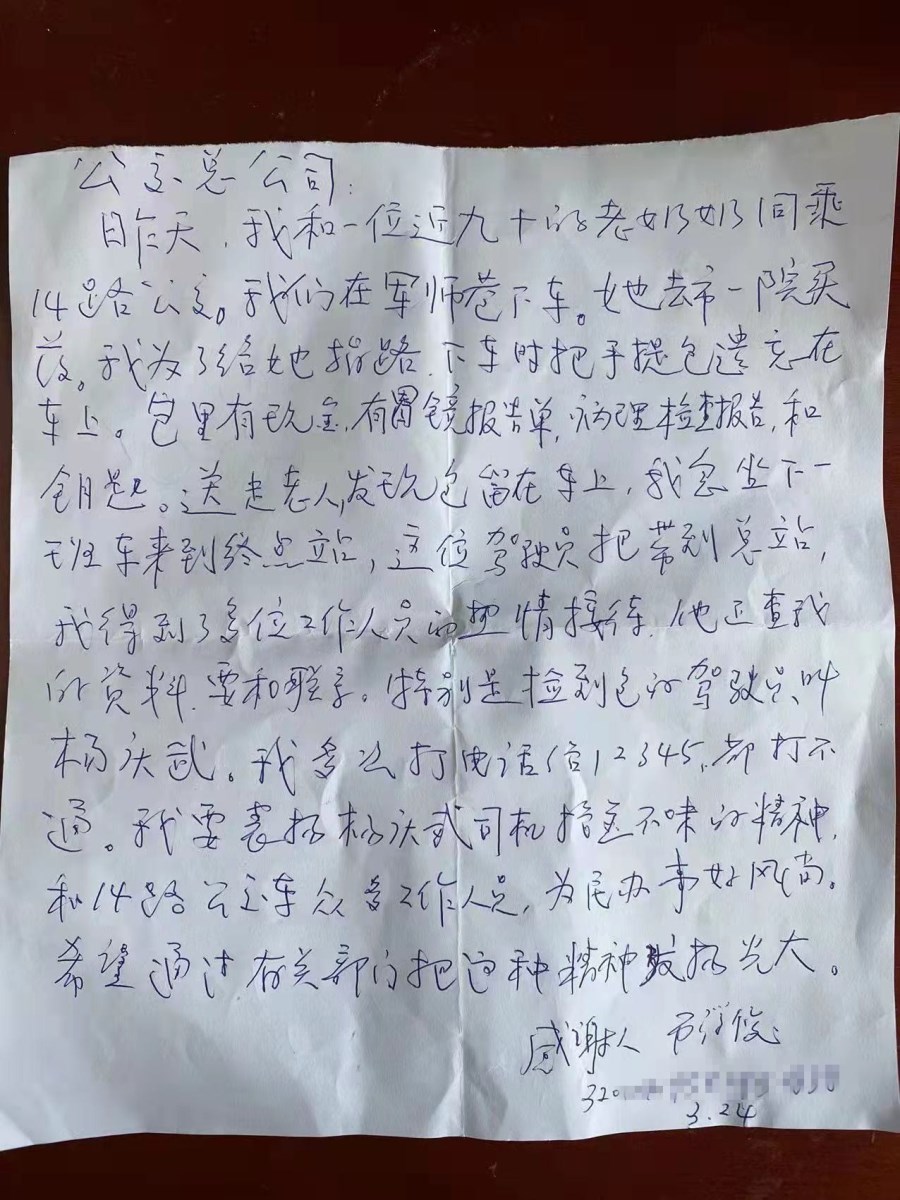 公交总公司：
昨天，我和一位近九十的老奶奶同乘
14路公交。我们在军师巷下车。她去市一院买
药。我为了给她指路.下车时把手提包遗忘在
车上。包里有现金,有胃镜报告单,病理检查报告,和
钥匙。送走老人,发现包留在车上,我忽坐下一
班车来到终点站,这位驾驶员把带到总站,
我得到了多位工作人员的热情接待.他正查我
的资料.要和联系。特别是捡到包的驾驶员叫
杨庆武。我多么打电话信12345,都打不
通。我要表扬杨庆武司机拾金不昧的精神,
和14路公交车众多工作人员,为民办事好风尚。
希望通过有关部门把这种精神发扬光大。
感谢人 俊
320
3.24